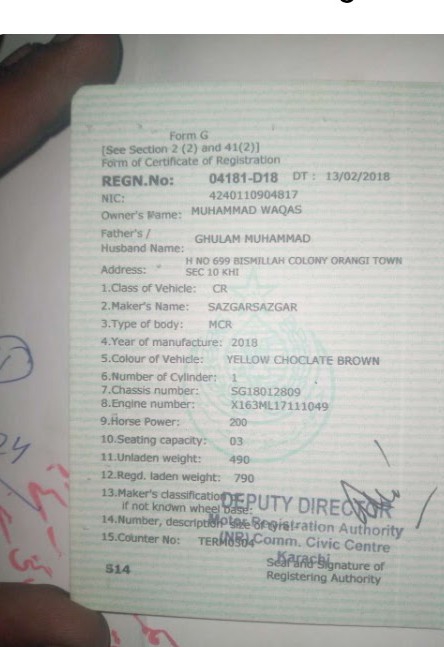 Form G
[See Section 2 (2) and 41(2)]
Form of Certificate of Registration
REGN.No: 04181-D18 DT : 13/02/2018
NIC: 4240110904817
Owner's Name: MUHAMMAD WAQAS
Father's /
Husband Name: GHULAM MUHAMMAD
H NO 699 BISMILLAH COLONY ORANGI TOWN
Address: SEC 10 KHI
1.Class of Vehicle: CR
2.Maker's Name: SAZGARSAZGAR
3.Type of body: MCR
4.Year of manufacture: 2018
5.Colour of Vehicle: YELLOW CHOCLATE BROWN
6.Number of Cylinder: 1
7.Chassis number: SG18012809
8.Engine number: X163ML17111049
9.Horse Power: 200
10.Seating capacity: 03
11.Unladen weight: 490
12.Regd. laden weight: 790
13.Maker's classification
if not known wheel base:
DEPUTY DIRECTOR
14.Number, description size of tyre
Motor Registration Authority
15.Counter No: TERM0304
(NR) Comm. Civic Centre
Karachi
Seal and Signature of
S14
Registering Authority
24